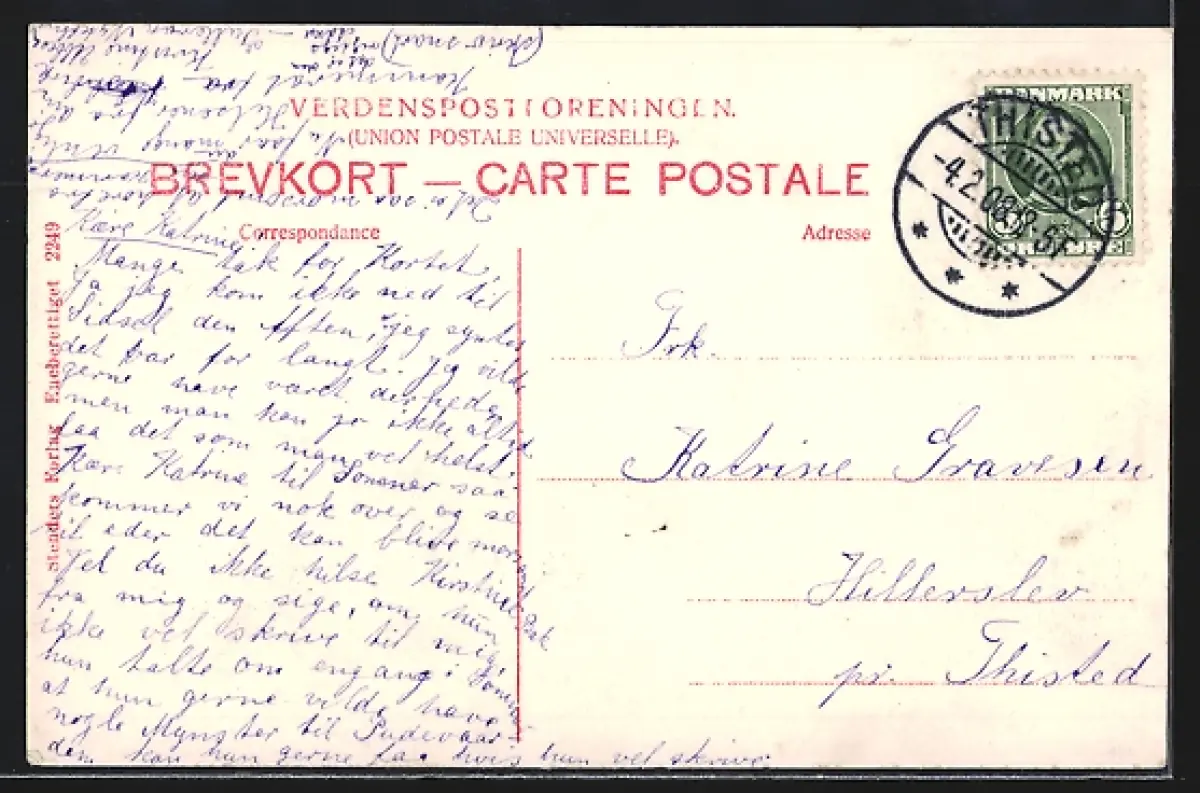 VERDENSPOSTFORENINGEN.
(UNION POSTALE UNIVERSELLE).
BREVKORT — CARTE POSTALE
Correspondance
Adresse
Stenders Forlag Eneberettiget 2249
DANMARK
THISTED
-4.2.08
Kære Katrine
Mange tak for Kortet,
Ja jag kom ikke ned til
den Aften, jeg syntes
det var for langt. jeg vilde
gerne have været dernede
men man kan jo ikke altid
faa det som man vel helst.
Kære Katrine til Sommer saa
kommer vi nok over og se
til eder det kan blive
Vel du ikke hilse Kirstine
fra mig og sige, om hun
ikke vel skrive til mig,
hun talte om engang i Sommer
at hun gerne vilde have
nogle Mynster til Pudevaar
dem kan hun gerne faa hvis hun vel skrive
(skriv snart)
Frk.
Katrine Gravesen
Hillerslev
pr. Thisted